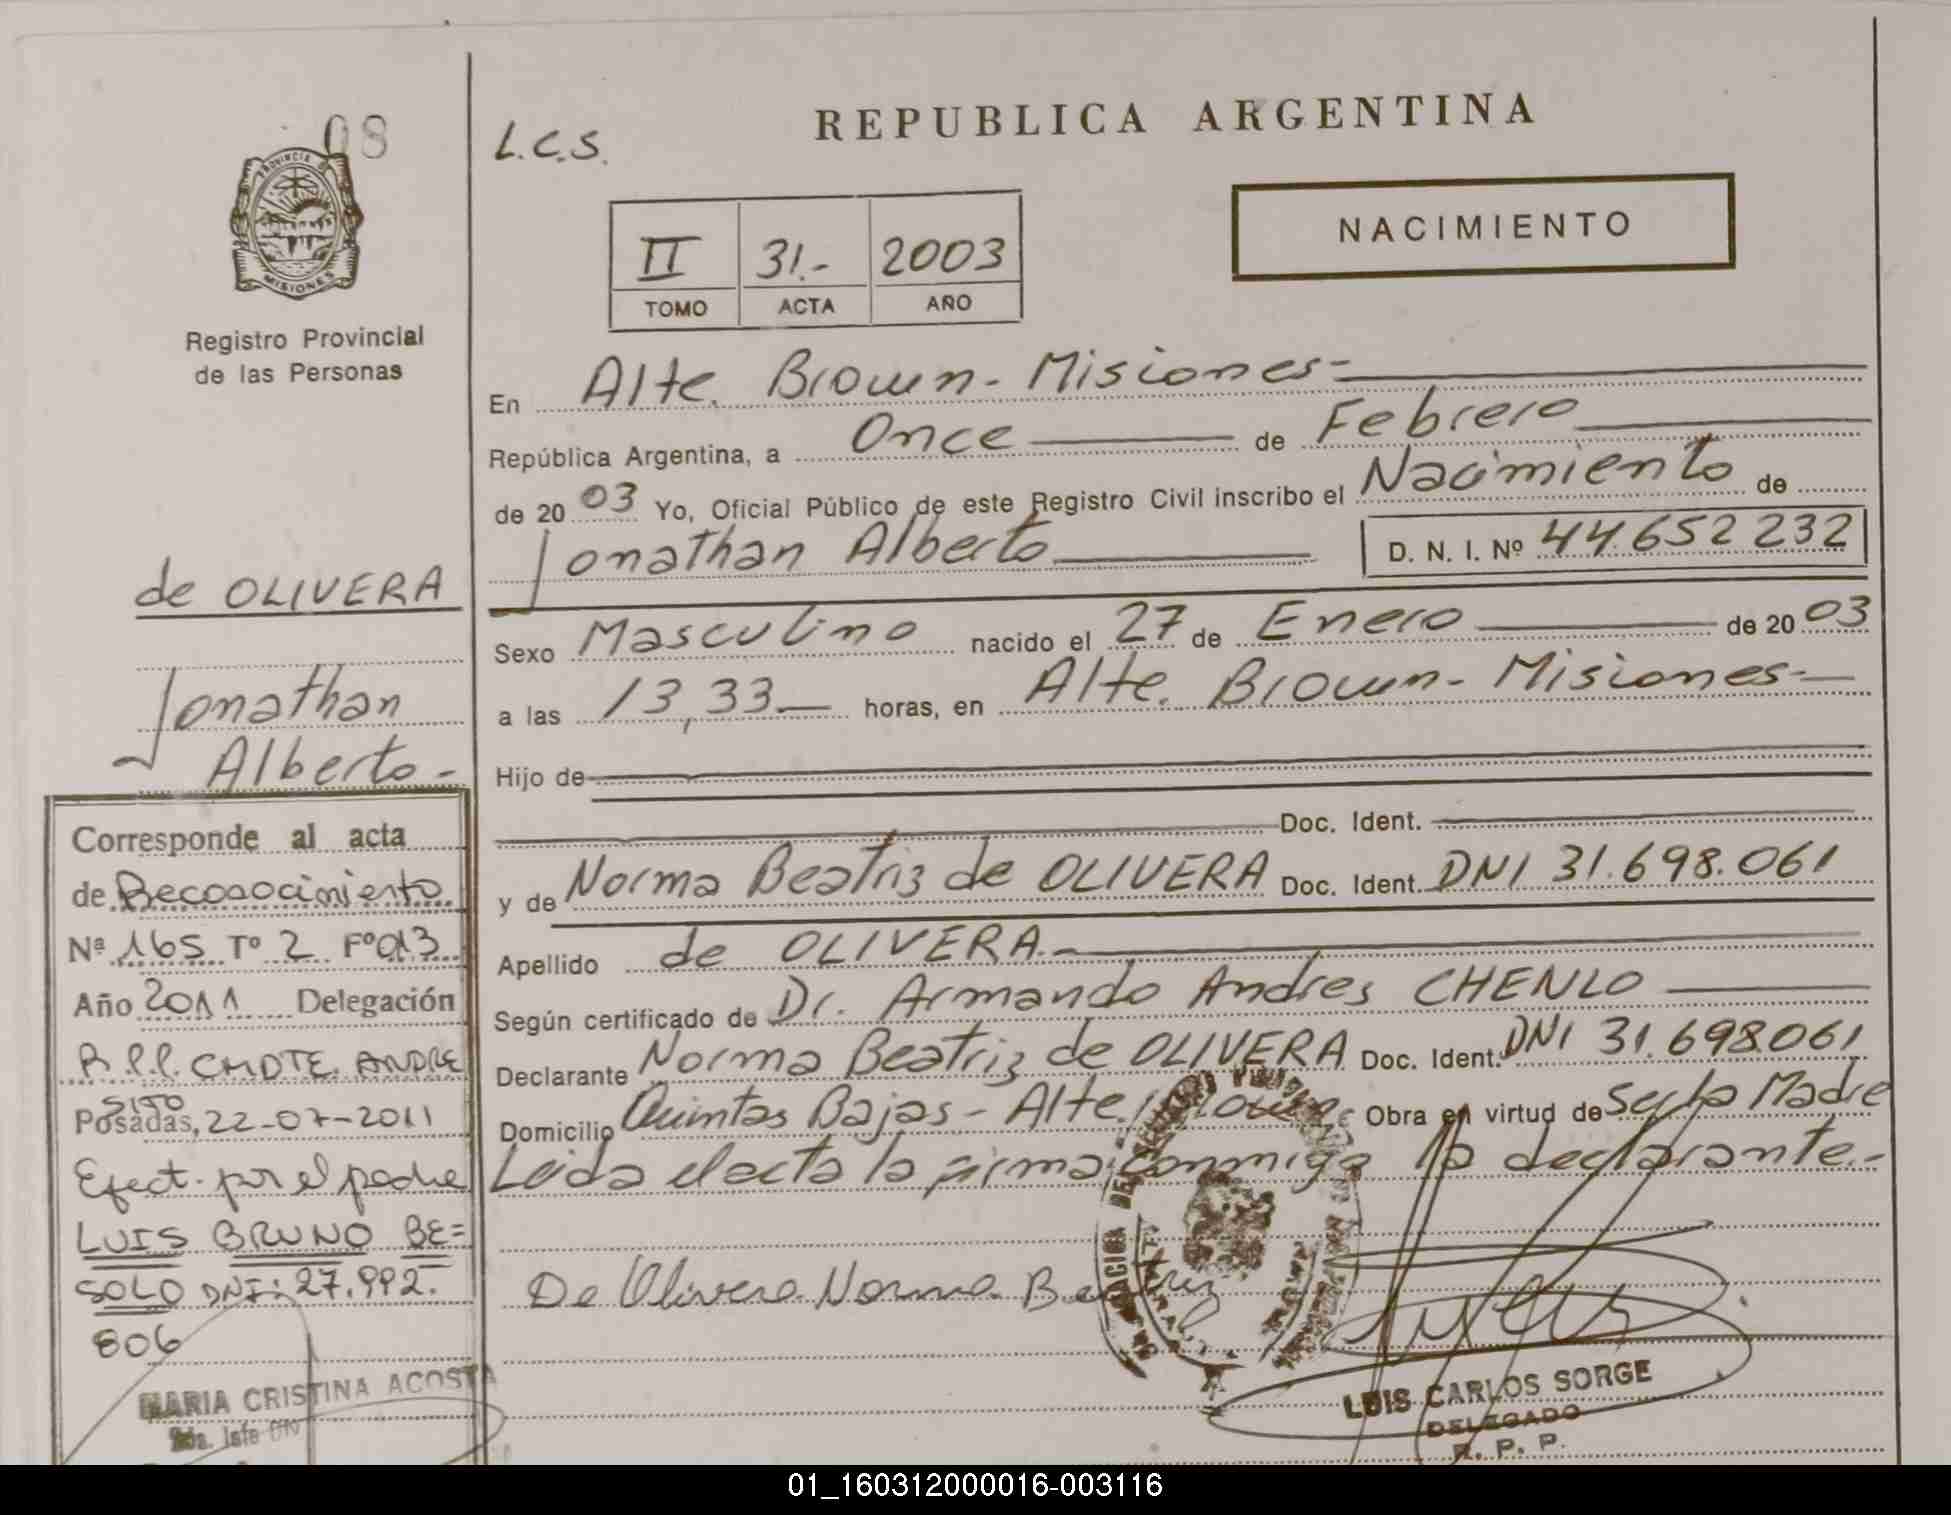 08
PROVINCIA DE
MISIONES
Registro Provincial
de las Personas
de OLIVERA
Jonathan
Alberto-
Corresponde al acta
de Reconocimiento
Nª 165 Tº 2 Fº 013
Año 2011 Delegación
R.P.P. CMDTE. ANDRE
SITO
Posadas, 22-07-2011
Efect. por el padre
LUIS BRUNO BE=
SOLO DNI: 27.992.
806
MARIA CRISTINA ACOSTA
L.C.S.
REPUBLICA ARGENTINA
II 31.- 2003
TOMO ACTA AÑO
NACIMIENTO
En Alte. Brown - Misiones-
República Argentina, a Once de Febrero
de 20 03 Yo, Oficial Público de este Registro Civil inscribo el Nacimiento de
Jonathan Alberto D. N. I. Nº 44.652232
Sexo Masculino nacido el 27 de Enero de 20 03
a las 13,33 horas, en Alte. Brown - Misiones-
Hijo de
Doc. Ident.
y de Norma Beatriz de OLIVERA Doc. Ident. DNI 31.698.061
Apellido de OLIVERA.-
Según certificado de Dr. Armando Andres CHENLO
Declarante Norma Beatriz de OLIVERA Doc. Ident. DNI 31.698.061
Domicilio Quintas Bajas - Alte. Brown Obra en virtud de ser la Madre
Leida el acta la firma conmigo la declarante.-
De Olivera Norma Beatriz
LUIS CARLOS SORGE
DELEGADO
R. P. P.
01_160312000016-003116